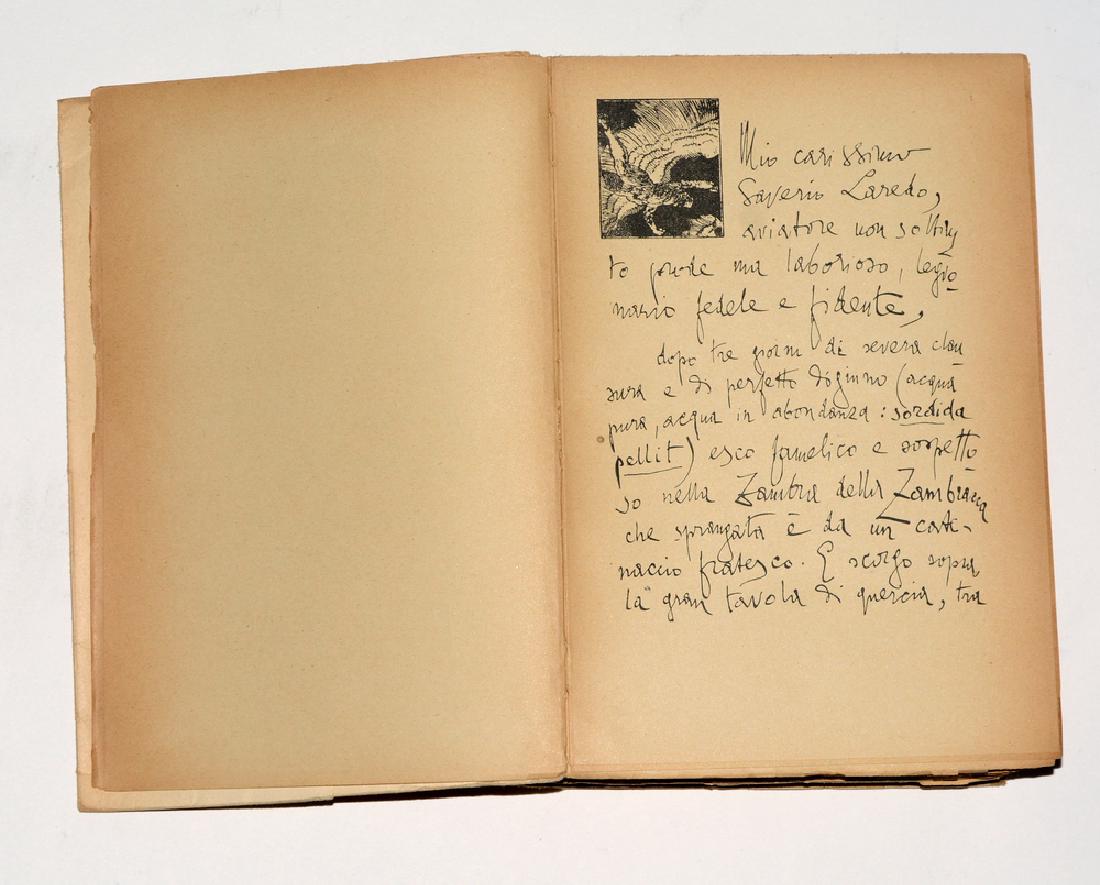 Mio carissimo
Saverio Laredo,
aviatore non soltan
to prode ma laborioso, legio
nario fedele e fidente,
dopo tre giorni di severa clau
sura e di perfetto digiuno (acqua
pura, acqua in abondanza : sordida
pellit) esco famelico e sospetto
so nella Zambra della Zambracca
che sprangata è da un cate-
naccio fratesco. E scorgo sopra
la gran tavola di quercia, tra